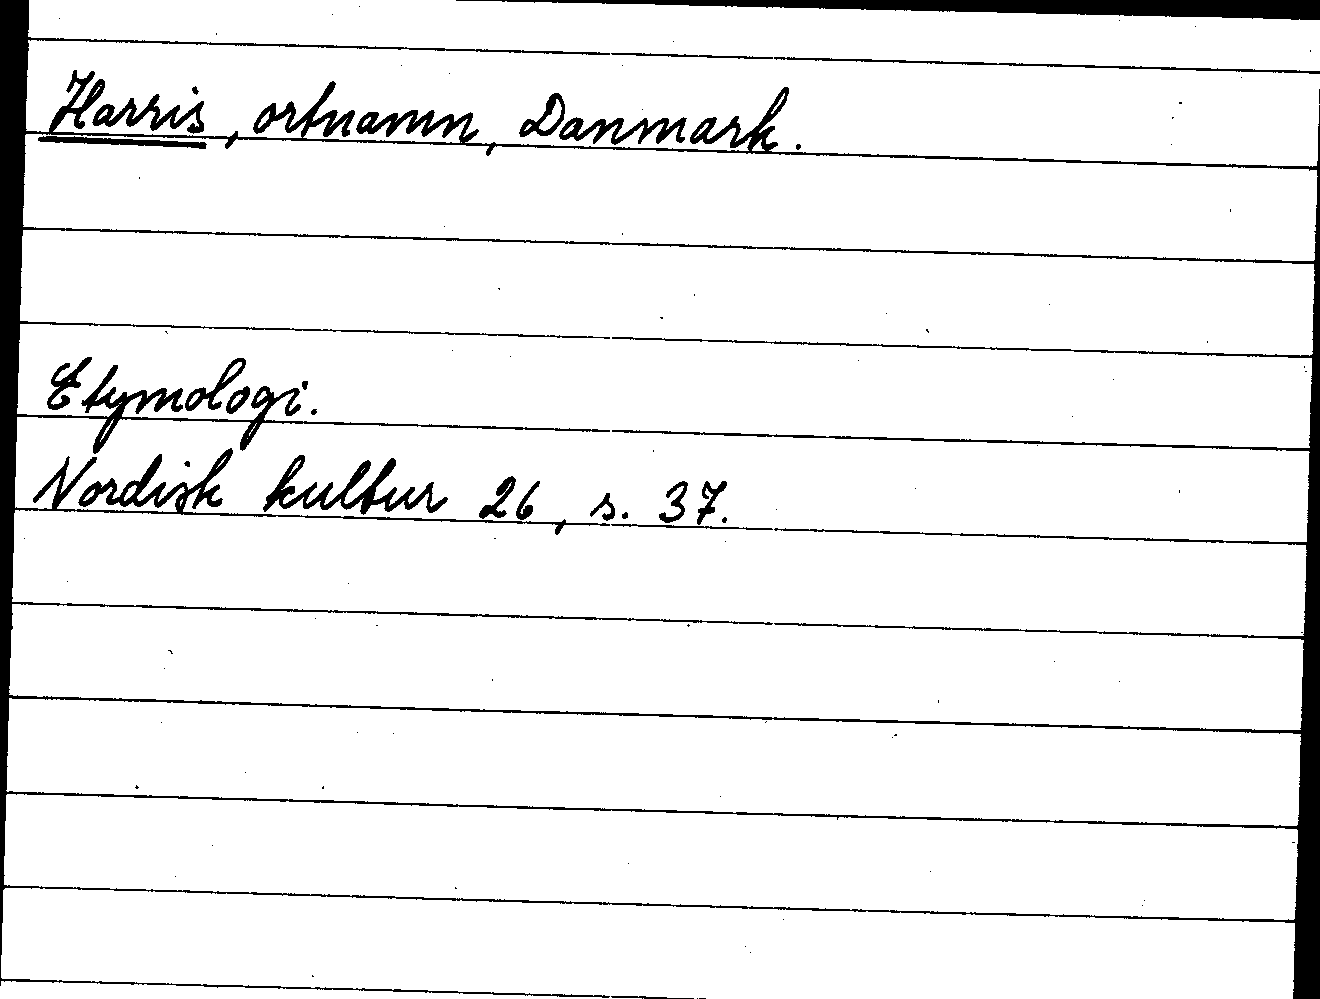 Harris, ortnamn, Danmark.
Etymologi.
Nordisk kultur 26, s. 37.